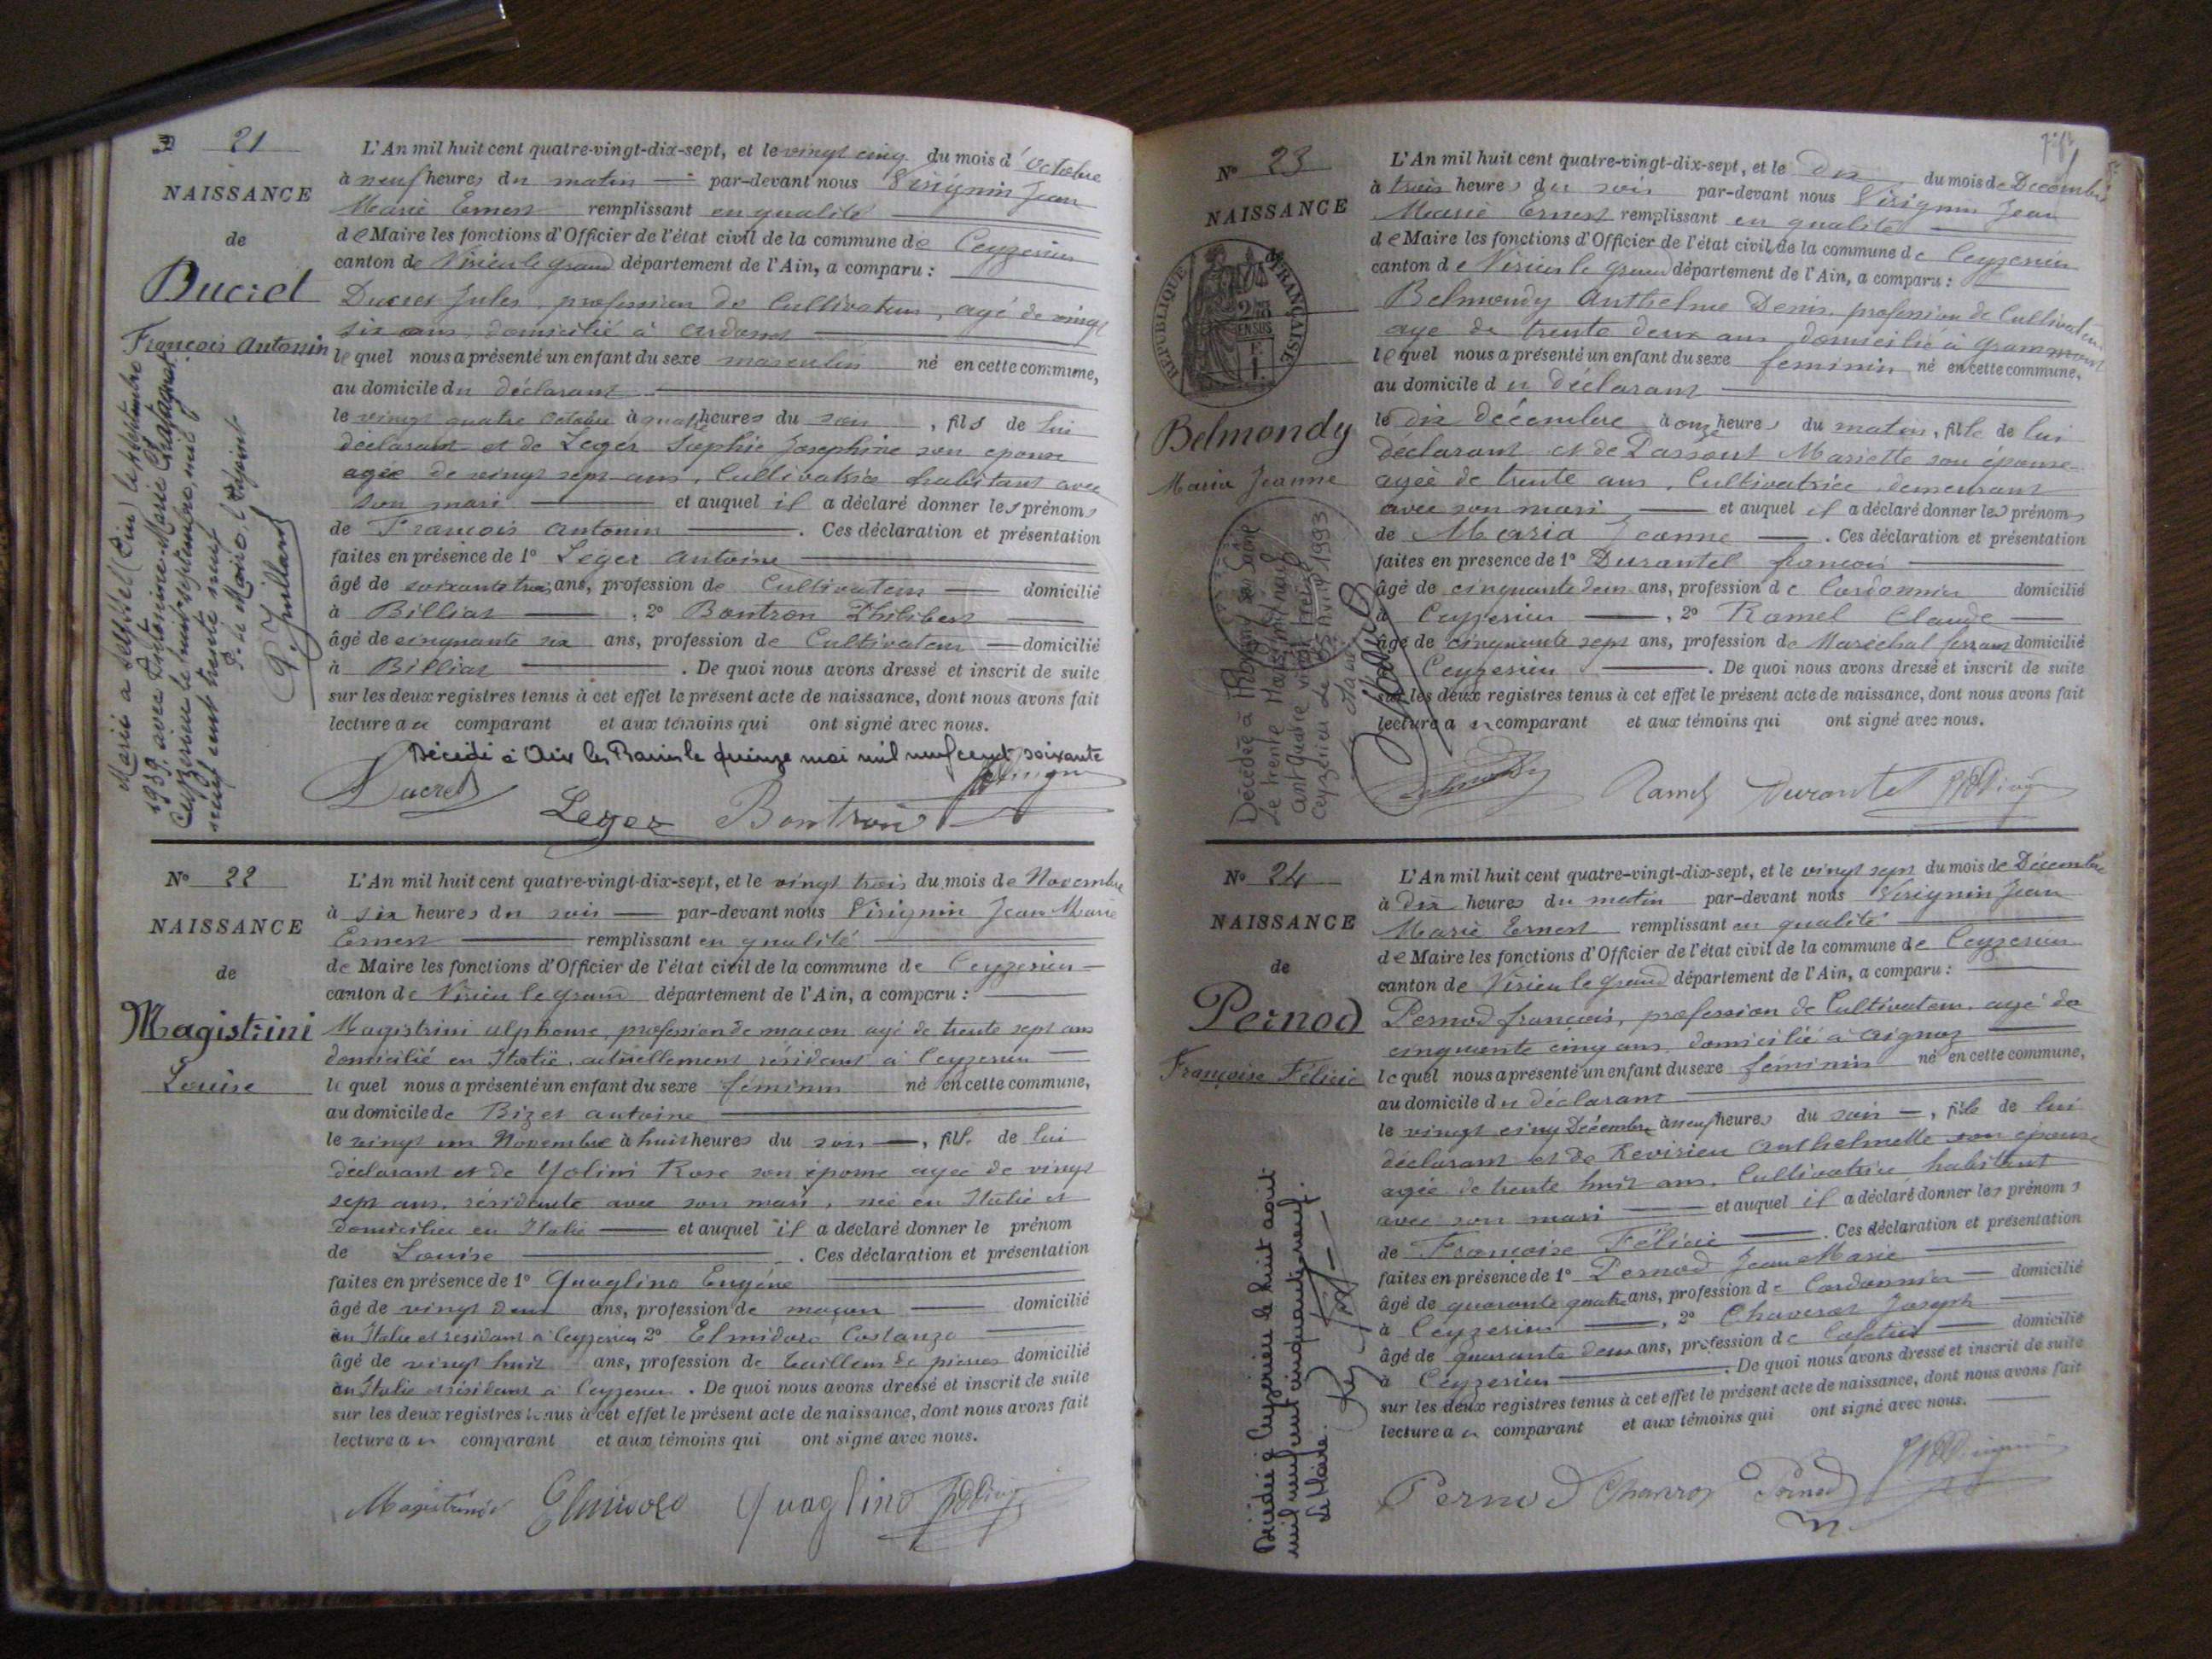 21
NAISSANCE
de
Ducret
François Antonin
L'An mil huit cent quatre-vingt-dix-sept, et le vingt cinq du mois d'octobre
à neuf heures du matin par-devant nous Virignin Jean
Marie Ernest remplissant en qualité
de Maire les fonctions d'Officier de l'état civil de la commune de Ceyzerieu
canton de Virieu le grand département de l'Ain, a comparu :
Ducret Jules, profession de Cultivateur, agé de vingt
six ans, domicilié à
lequel nous a présenté un enfant du sexe masculin né en cette commune,
au domicile du déclarant
le vingt quatre octobre à quatre heures du soir, fils de lui
déclarant et de Leger Sophie Josephine son epouse
agée de vingt sept ans, Cultivatrice habitant avec
son mari et auquel il a déclaré donner les prénoms
de François Antonin. Ces déclaration et présentation
faites en présence de 1° Leger Antoine
âgé de soixante trois ans, profession de Cultivateur domicilié
à Billiat, 2° Bontron Philibert
âgé de cinquante six ans, profession de Cultivateur domicilié
à Billiat. De quoi nous avons dressé et inscrit de suite
sur les deux registres tenus à cet effet le présent acte de naissance, dont nous avons fait
lecture au comparant et aux témoins qui ont signé avec nous.
Décédé à Aix les Bains le quinze mai mil neuf cent soixante
Ducret
Leger Bontron
Marié à (Ain) le septembre
1939 avec Antoinine-Marie Chatagnat
Ceyzerieu le huit septembre, mil
neuf cent trente neuf
P. le Maire, l'Adjoint
P. Juillard
N° 22
NAISSANCE
de
Magistrini
Louise
L'An mil huit cent quatre-vingt-dix-sept, et le vingt trois du mois de Novembre
à six heures du soir par-devant nous Virignin Jean Marie
Ernest remplissant en qualité
de Maire les fonctions d'Officier de l'état civil de la commune de Ceyzerieu
canton de Virieu le grand département de l'Ain, a comparu :
Magistrini alphonse, profession de maçon agé de trente sept ans
domicilié en Italie, actuellement résidant à Ceyzerieu
lequel nous a présenté un enfant du sexe féminin né en cette commune,
au domicile de Bizet antoine
le vingt un Novembre à huit heures du soir, fille de lui
déclarant et de Yolini Rose son épouse agée de vingt
sept ans, résidante avec son mari, née en Italie et
domiciliée en Italie et auquel il a déclaré donner le prénom
de Louise. Ces déclaration et présentation
faites en présence de 1° Quaglino Eugène
âgé de vingt deux ans, profession de maçon domicilié
en Italie et residant à Ceyzerieu 2° Elmidoro Costanzo
âgé de vingt huit ans, profession de tailleur de pierres domicilié
en Italie résidant à Ceyzerieu. De quoi nous avons dressé et inscrit de suite
sur les deux registres tenus à cet effet le présent acte de naissance, dont nous avons fait
lecture au comparant et aux témoins qui ont signé avec nous.
Magistrini Elmidoro Quaglino
N° 23
NAISSANCE
RÉPUBLIQUE FRANÇAISE
Belmondy
Maria Jeanne
L'An mil huit cent quatre-vingt-dix-sept, et le dix du mois de Décembre
à trois heures du soir par-devant nous Virignin Jean
Marie Ernest remplissant en qualité
de Maire les fonctions d'Officier de l'état civil de la commune de Ceyzerieu
canton de Virieu le grand département de l'Ain, a comparu :
Belmondy Anthelme Denis, profession de Cultivateur
agé de trente deux ans domicilié à Grammont
lequel nous a présenté un enfant du sexe féminin né en cette commune,
au domicile du déclarant
le dix décembre à onze heures du matin, fille de lui
déclarant et de Passout Mariette son épouse
agée de trente ans, Cultivatrice demeurant
avec son mari et auquel il a déclaré donner les prénoms
de Maria Jeanne. Ces déclaration et présentation
faites en présence de 1° Durantel françois
âgé de cinquante deux ans, profession de Cordonnier domicilié
à Ceyzerieu, 2° Ramel Claude
âgé de cinquante sept ans, profession de Maréchal ferrant domicilié
Ceyzerieu. De quoi nous avons dressé et inscrit de suite
sur les deux registres tenus à cet effet le présent acte de naissance, dont nous avons fait
lecture au comparant et aux témoins qui ont signé avec nous.
Ramel Durantel
Décédée à
le trente
Ceyzérieu le 1993
N° 24
NAISSANCE
de
Pernod
Françoise Félicie
L'An mil huit cent quatre-vingt-dix-sept, et le vingt sept du mois de Décembre
à dix heures du matin par-devant nous Virignin Jean
Marie Ernest remplissant en qualité
de Maire les fonctions d'Officier de l'état civil de la commune de Ceyzerieu
canton de Virieu le grand département de l'Ain, a comparu :
Pernod françois, profession de Cultivateur, agé de
cinquante cinq ans domicilié à Aignoz
lequel nous a présenté un enfant du sexe féminin né en cette commune,
au domicile du déclarant
le vingt cinq Décembre à neuf heures du soir, fille de lui
déclarant et de Revirieu Anthelmette son épouse
agée de trente huit ans, Cultivatrice habitant
avec son mari et auquel il a déclaré donner les prénoms
de Françoise Félicie. Ces déclaration et présentation
faites en présence de 1° Pernod Jean Marie
âgé de quarante quatre ans, profession de Cordonnier domicilié
à Ceyzerieu, 2° Chaverot Joseph
âgé de quarante deux ans, profession de Cafetier domicilié
à Ceyzerieu. De quoi nous avons dressé et inscrit de suite
sur les deux registres tenus à cet effet le présent acte de naissance, dont nous avons fait
lecture au comparant et aux témoins qui ont signé avec nous.
Pernod Chaverot Pernod
Décédée à Ceyzérieu le huit août
mil neuf cent cinquante neuf.
Le Maire.